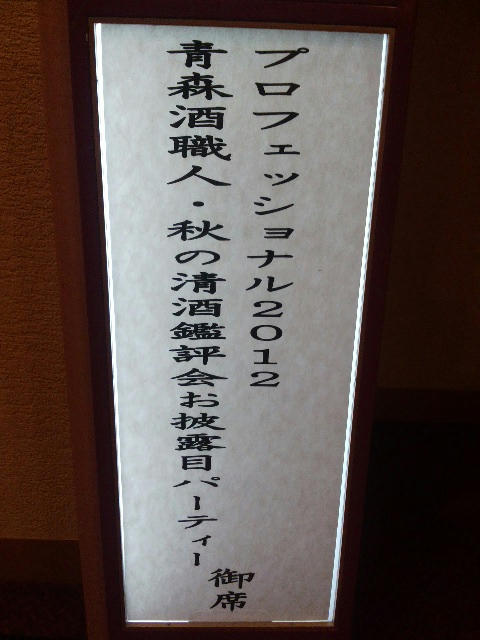 プロフェッショナル2012
青森酒職人・秋の清酒鑑評会お披露目パーティー
御席